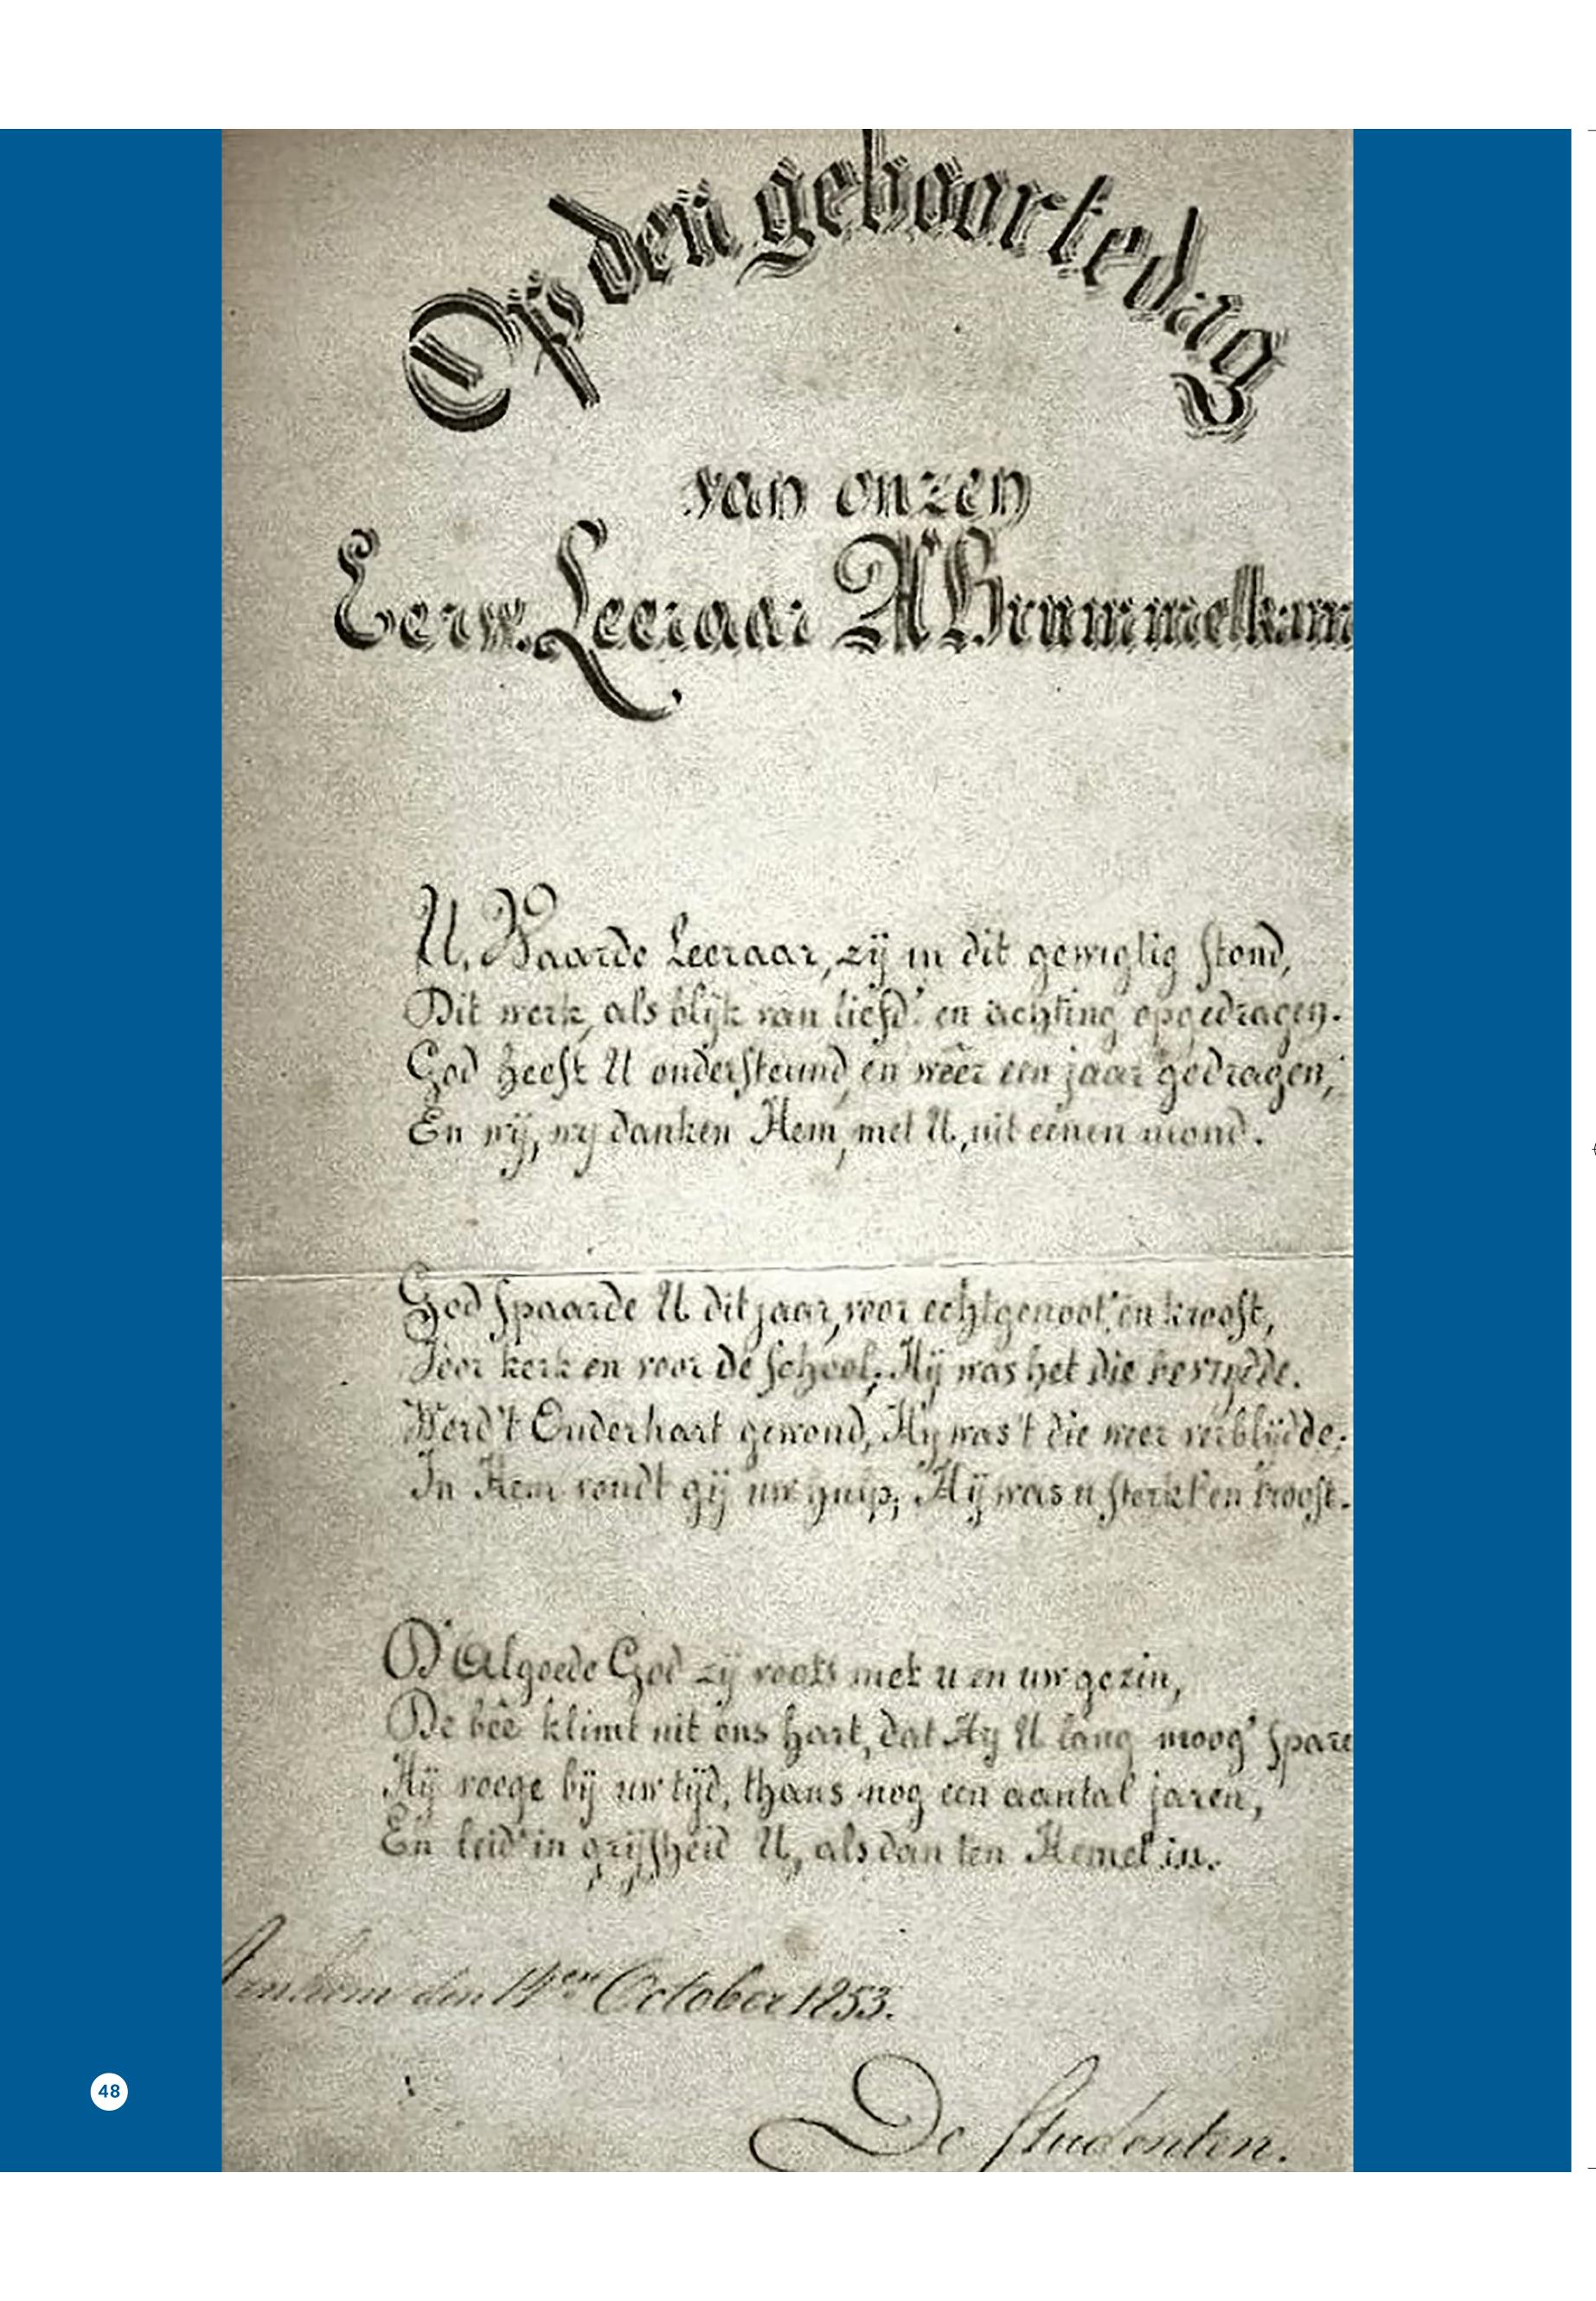 Op den geboortedag
van onzen
Eerw. Leeraar A Brummelkam
U, Waarde Leeraar, zij in dit gewigtig stond,
Dit werk, als blijk van liefd' en achting opgedragen.
God heeft U ondersteund, en wêer een jaar gedragen,
En wij, wy danken Hem, met U, uit eenen mond.
God spaarde U dit jaar, voor echtgenoot' en kroost,
Voor kerk en voor de school; Hij was het die bevrijdde.
Werd 't Ouderhart gewond, Hy was 't die weer verblijdde;
In Hem vondt gij uw hulp; Hij was u sterkt' en troost.
D' Algoede God zij voorts met u en uw gezin,
De beê klimt uit ons hart, dat Hy U lang moog' spare
Hij voege bij uw tijd, thans nog een aantal jaren,
En leid' in grijsheid U, als dan ten Hemel in.
Arnhem den 14en October 1853.
De Studenten.
48